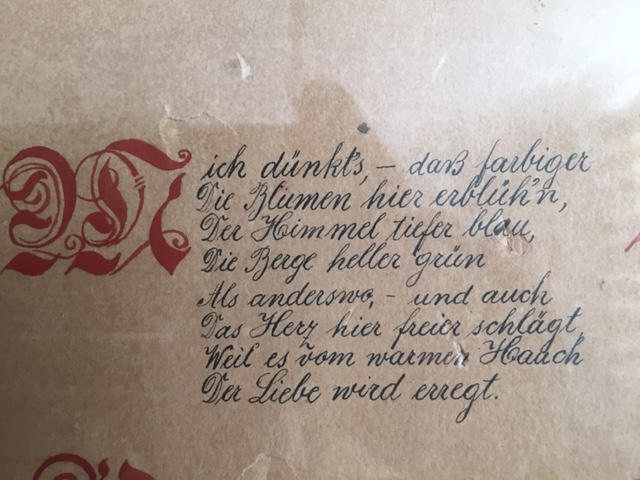 Mich dünkt's, – daß farbiger
Die Blumen hier erblüh'n,
Der Himmel tiefer blau,
Die Berge heller grün
Als anderswo, – und auch
Das Herz hier freier schlägt,
Weil es vom warmen Hauch
Der Liebe wird erregt.